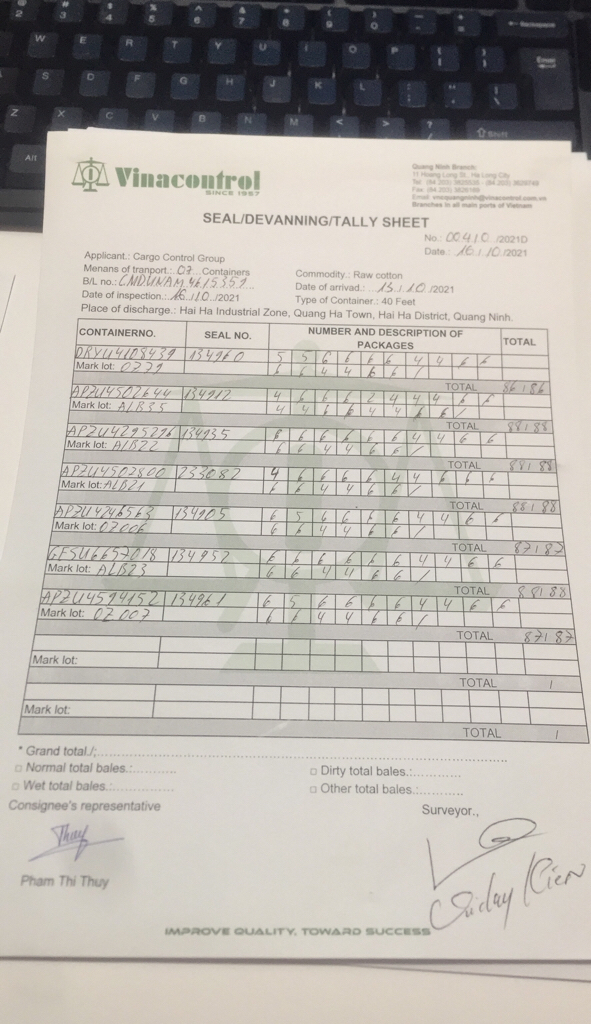 Vinacontrol
SINCE 1957
Quang Ninh Branch:
11 Hoang Long St., Ha Long City
Branches in all main ports of Vietnam
SEAL/DEVANNING/TALLY SHEET
No.: 00410 /2021D
Date.: 16/10/2021
Applicant.: Cargo Control Group
Menans of tranport.: 07 Containers
Commodity.: Raw cotton
B/L no.: CMDUNAM4615351
Date of arrival.: 15/10/2021
Date of inspection.: 16/10/2021
Type of Container.: 40 Feet
Place of discharge.: Hai Ha Industrial Zone, Quang Ha Town, Hai Ha District, Quang Ninh.
CONTAINERNO. SEAL NO. NUMBER AND DESCRIPTION OF PACKAGES TOTAL
DRYU4108439 134960 5 5 6 6 6 6 4 4 6 6
Mark lot: 0279 6 6 4 4 6 6 /
TOTAL 86/86
APZU4502644 134912 4 6 6 6 2 4 4 4 6 6
Mark lot: ALB35 4 4 6 6 4 4 6 6 /
TOTAL 88/88
APZU4295276 134935 6 6 6 6 6 6 4 4 6 6
Mark lot: ALB22 6 6 4 4 6 6 /
TOTAL 88/88
APZU4502800 233082 4 6 6 6 6 4 4 6 6
Mark lot: ALB21 6 6 4 4 6 6 /
TOTAL 88/88
APZU4246563 134905 6 5 6 6 6 6 4 4 6 6
Mark lot: 0Z006 6 6 4 4 6 6 /
TOTAL 87/87
GESU6657018 134952 6 6 6 6 6 6 4 4 6 6
Mark lot: ALB23 6 6 4 4 6 6 /
TOTAL 88/88
APZU4594152 134961 6 5 6 6 6 6 4 4 6 6
Mark lot: 0Z007 6 6 4 4 6 6 /
TOTAL 87/87
Mark lot:
TOTAL /
Mark lot:
TOTAL /
* Grand total./:
□ Normal total bales.:
□ Dirty total bales.:
□ Wet total bales.:
□ Other total bales.:
Consignee's representative
Surveyor.,
Thuy
Pham Thi Thuy
IMPROVE QUALITY, TOWARD SUCCESS